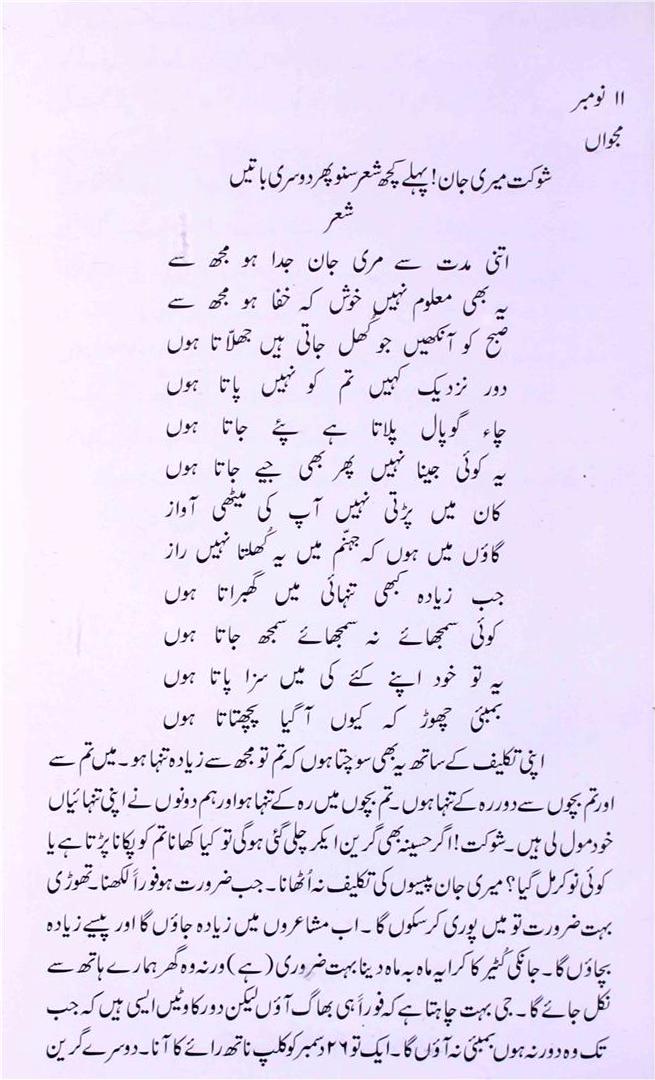 ۱۱ نومبر
مجواں
شوکت میری جان! پہلے کچھ شعر سنو پھر دوسری باتیں
شعر
اتنی مدت سے مری جان جدا ہو مجھ سے
یہ بھی معلوم نہیں خوش کہ خفا ہو مجھ سے
صبح کو آنکھیں جو کُھل جاتی ہیں جھلّاتا ہوں
دور نزدیک کہیں تم کو نہیں پاتا ہوں
چاء گوپال پلاتا ہے پئے جاتا ہوں
یہ کوئی جینا نہیں پھر بھی جیے جاتا ہوں
کان میں پڑتی نہیں آپ کی میٹھی آواز
گاؤں میں ہوں کہ جہنّم میں یہ کُھلتا نہیں راز
جب زیادہ کبھی تنہائی میں گھبراتا ہوں
کوئی سمجھائے نہ سمجھائے سمجھ جاتا ہوں
یہ تو خود اپنے کئے کی میں سزا پاتا ہوں
بمبئی چھوڑ کہ کیوں آگیا پچھتاتا ہوں
اپنی تکلیف کے ساتھ یہ بھی سوچتا ہوں کہ تم تو مجھ سے زیادہ تنہا ہو۔ میں تم سے
اور تم بچوں سے دور رہ کے تنہا ہوں۔ تم بچوں میں رہ کے تنہا ہو اور ہم دونوں نے اپنی تنہائیاں
خود مول لی ہیں۔ شوکت! اگر حسینہ بھی گرین ایکر چلی گئی ہوگی تو کیا کھانا تم کو پکانا پڑتا ہے یا
کوئی نوکر مل گیا؟ میری جان پیسوں کی تکلیف نہ اُٹھانا۔ جب ضرورت ہو فوراً لکھنا۔ تھوڑی
بہت ضرورت تو میں پوری کرسکوں گا۔ اب مشاعروں میں زیادہ جاؤں گا اور پیسے زیادہ
بچاؤں گا۔ جانکی کُٹیر کا کرایہ ماہ بہ ماہ دینا بہت ضروری (ہے) ورنہ وہ گھر ہمارے ہاتھ سے
نکل جائے گا۔ جی بہت چاہتا ہے کہ فوراً ہی بھاگ آؤں لیکن دو رکاوٹیں ایسی ہیں کہ جب
تک وہ دور نہ ہوں بمبئی نہ آؤں گا۔ ایک تو ۲۶ دسمبر کو کلپ ناتھ رائے کا آنا۔ دوسرے گرین